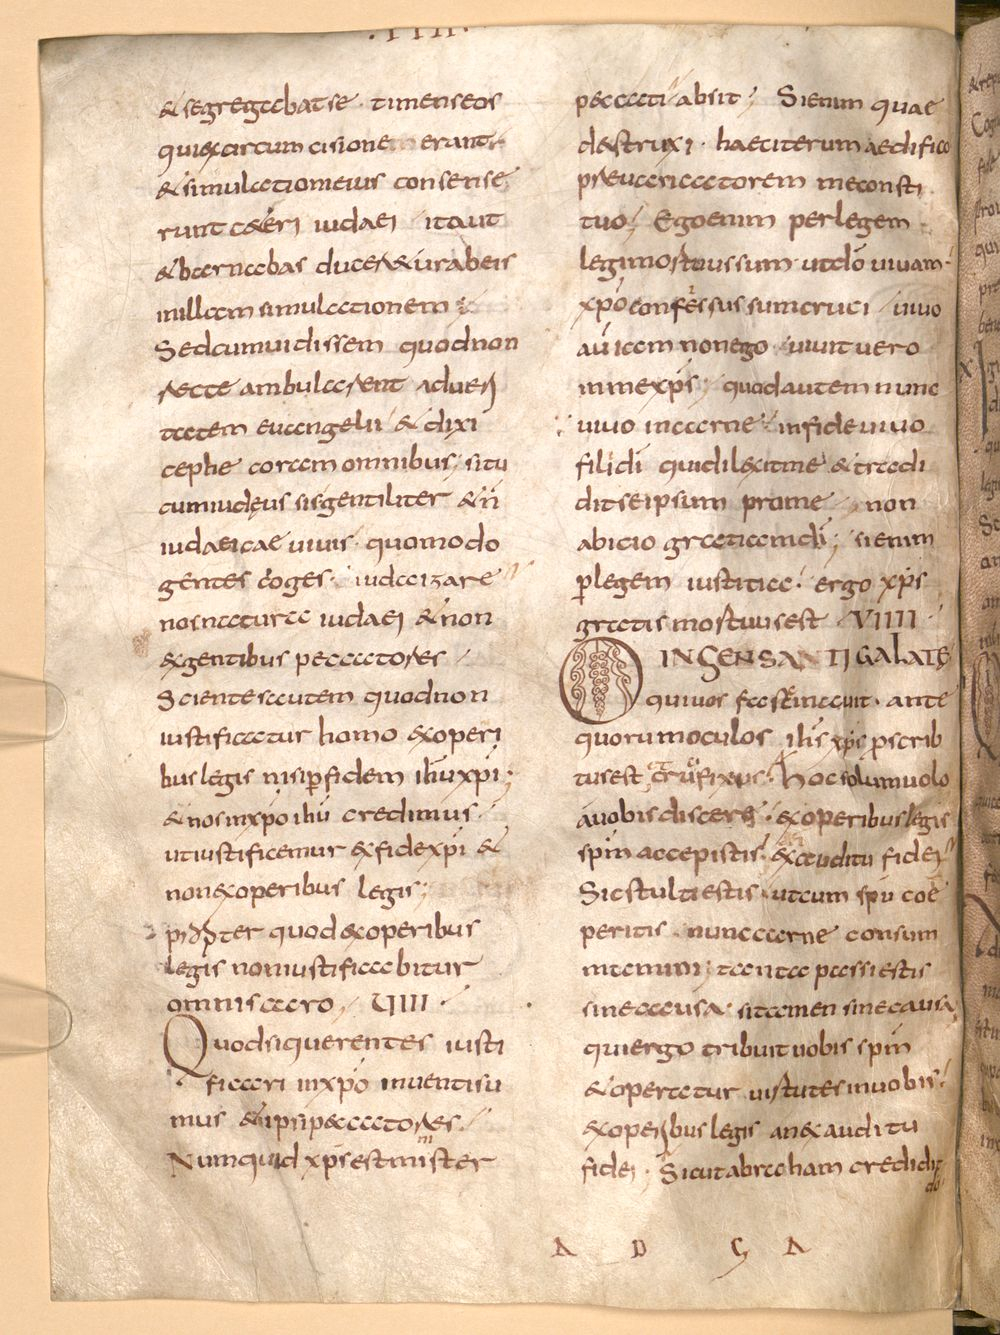 ·IIII·
& segregabat se· timens eos
qui ex circumcisione erant·
& simulationi eius consense
runt cæteri iudaei· ita ut
& barnabas duceretur ab eis
in illam simulationem;
Sed cum uidissem quod non
recte ambularent ad ueri
tatem euangelii & dixi
cephe coram omnibus; si tu
cum iudęus sis gentiliter & n̄
iudaicae uiuis· quomodo
gentes coges· iudaizare
nos natura iudaei & non
ex gentibus peccatores·
Scientes autem quod non
iustificatur homo ex operi
bus legis nisi p̱ fidem ihu xpi;
& nos in xpo ihu credimus·
ut iustificemur ex fide xpi &
non ex operibus legis;
propter quod ex operibus
legis non iustificabitur
omnis caro· VIII·
Quod si querentes iusti
ficari in xpo inuenti su
mus & ipsi peccatores·
Numquid xps est minister
peccati absit; Si enim quae
destruxi· haec iterum aedifico
preuaricatorem me consti
tuo; Ego enim per legem
legi mortuus sum ut dō uiuam·
xpo confessus sum cruci· uiuo
autem non ego· uiuit uero
in me xps; quod autem nunc
uiuo in carne· in fide uiuo
filii di qui dilexit me & tradi
dit se ipsum pro me· non
abicio gratiam di; si enim
p̱ legem iustitia· ergo xps
gratis mortuus est VIIII·
O INSENSANTI GALATE
qui uos fascinauit· ante
quorum oculos ihs xps p̱scrib
tus est crufixus· Hoc solum uolo
a uobis discere· ex operibus legis
spm accepistis· ex auditu fidei
Sic stulti estis· ut cum spu coe
peritis· nunc carne consum
memini; tanta passi estis
sine causa· si tamen sine causa
qui ergo tribuit uobis spm
& operatur uirtutes in uobis·
ex operibus legis an ex auditu
fidei· Sicut abraham credidit
do
A D G A